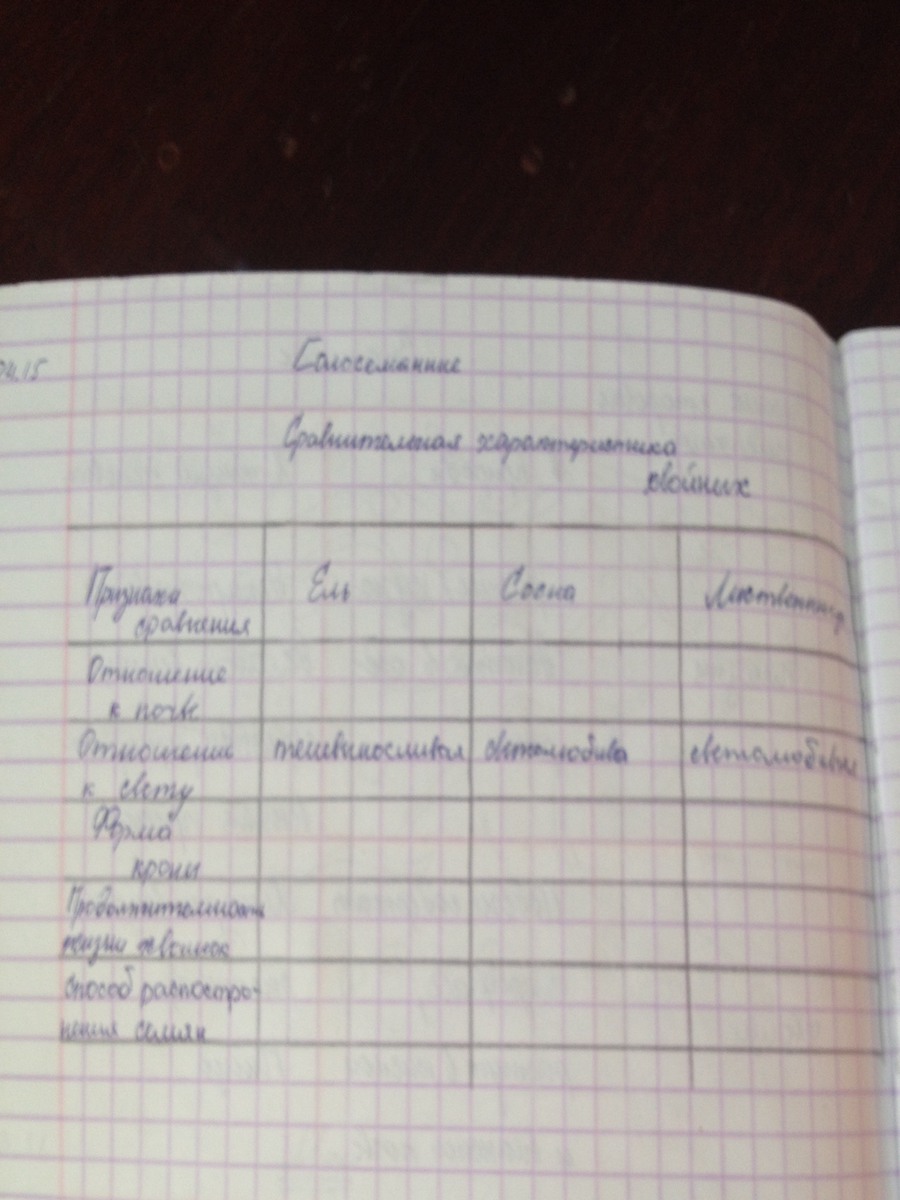 04.15
Голосеманние
Сравнительная характеристика
хвойних
Признака
сравнения
Ель
Сосна
Лиственница
Отношение
к почве
Отношение
к свету
тешевынослывая
светолюбива
светолюбивые
Форма
крони
Продолжительность
жизни хвоинок
способ распостро-
нения семян